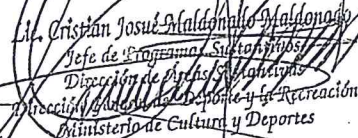 Lic. Cristian Josué Maldonado Maldonado
Jefe de Programas Sustantivos
Dirección de Áreas Sustantivas
Dirección General del Deporte y la Recreación
Ministerio de Cultura y Deportes